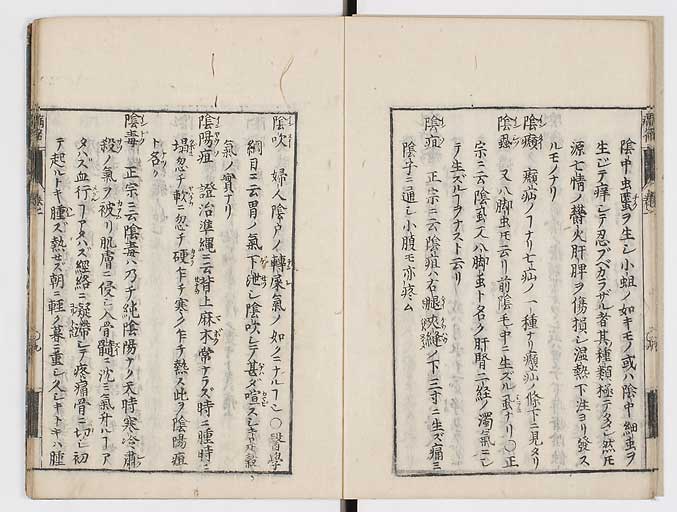 陰中虫䘌ヲ生シ小蛆ノ如キモノ或ハ陰中細虫ヲ
生シテ痒シテ忍ブベカラザル者其種類極テ多シ然モ
源七情ノ鬱火肝脾ヲ傷損シ湿熱下注ヨリ發ス
ルモノナリ
陰㿗 㿗疝ノ一ナリ七疝ノ一種ナリ㿗疝ノ條下ニ見タリ
陰蝨 又八脚虫モ云リ前陰毛中ニ生ズル虱ナリ〇正
宗ニ云陰虱又八脚虫ト名ク肝腎二経ノ濁氣ニシ
テ生ズルヿヲナスト云リ
陰疽 正宗ニ云陰疽ハ右腿夾縫ノ下三寸ニ生ズ痛ミ
陰子ニ通シ小腹モ亦疼ム
陰吹 婦人陰戸ノ轉屎氣ノ如クニナルヿ〇醫學
綱目ニ云胃ノ氣下泄シ陰吹シテ甚ダ喧スシキハ
氣ノ實ナリ
陰陽疽 證治準縄ニ云背上麻木常ナラズ時ニ腫時ニ
塌忽チ軟忽チ硬乍チ寒ク乍チ熱ス此ヲ陰陽疽
ト名ク
陰毒 正宗ニ云陰毒ハ乃チ純陰陽ナク天時寒冷肅
殺ノ氣ヲ被リ肌膚ニ侵シ入骨髄ニ沈ミ氣升ルヿア
タハズ血行ヿアタハズ經絡ニ凝滯シテ疼痛骨ニ切シ初
テ起ルトキ腫ズ熱セズ朝ニ軽ク暮ニ重シ久シキトキハ腫